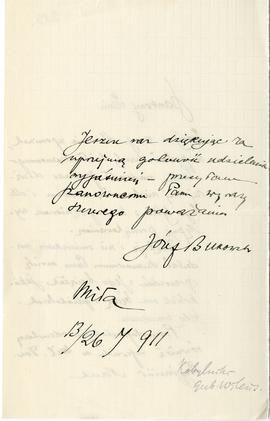 Jeszcze raz dziękując za
uprzejmą gotowość udzielenia
wyjaśnień – przesyłam
Szanownemu Panu wyrazy
szczerego poważania
Józef Bukowski
Miła
13/26 7 911
Kobylniki
gub. Wileńs.